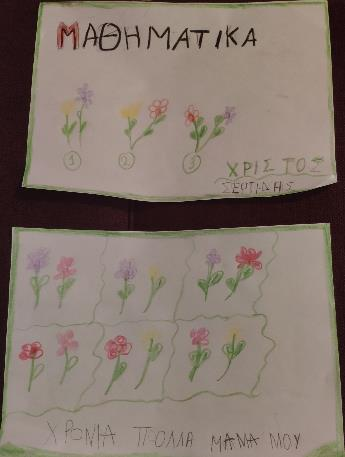 ΜΑΘΗΜΑΤΙΚΑ
1 2 3
ΧΡΙΣΤΟΣ
ΧΡΟΝΙΑ ΠΟΛΛΑ ΜΑΝΑ ΜΟΥ